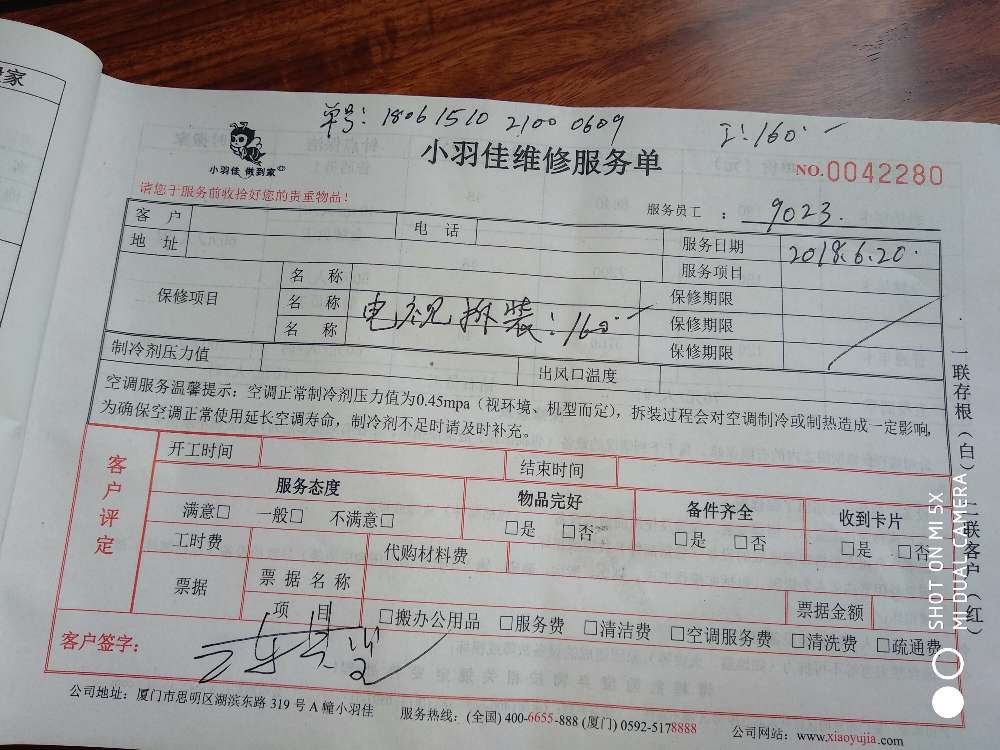 家
单号：18061510
2100 0609
工：160.
小羽佳 做到家
小羽佳维修服务单
NO.0042280
请您于服务前收拾好您的贵重物品！
服务员工 ： 9023.
客 户
电 话
服务日期 2018.6.20.
地 址
服务项目
保修项目
名 称
保修期限
名 称 电视拆装：160.
保修期限
名 称
保修期限
制冷剂压力值
出风口温度
空调服务温馨提示：空调正常制冷剂压力值为0.45mpa（视环境、机型而定），拆装过程会对空调制冷或制热造成一定影响,
为确保空调正常使用延长空调寿命，制冷剂不足时请及时补充。
一联存根（白）
二联客户（红）
客户评定
开工时间
结束时间
服务态度
物品完好
备件齐全
收到卡片
满意□ 一般□ 不满意□
□是 □否
□是 □否
□是 □否
工时费
代购材料费
票据
票据名称
票据金额
项 目
□搬办公用品 □服务费 □清洁费 □空调服务费 □清洗费 □疏通费
客户签字：
公司地址：厦门市思明区湖滨东路 319 号 A 幢小羽佳
服务热线：(全国) 400-6655-888 (厦门) 0592-5178888
公司网站：www.xiaoyujia.com
SHOT ON MI 5X
MI DUAL CAMERA